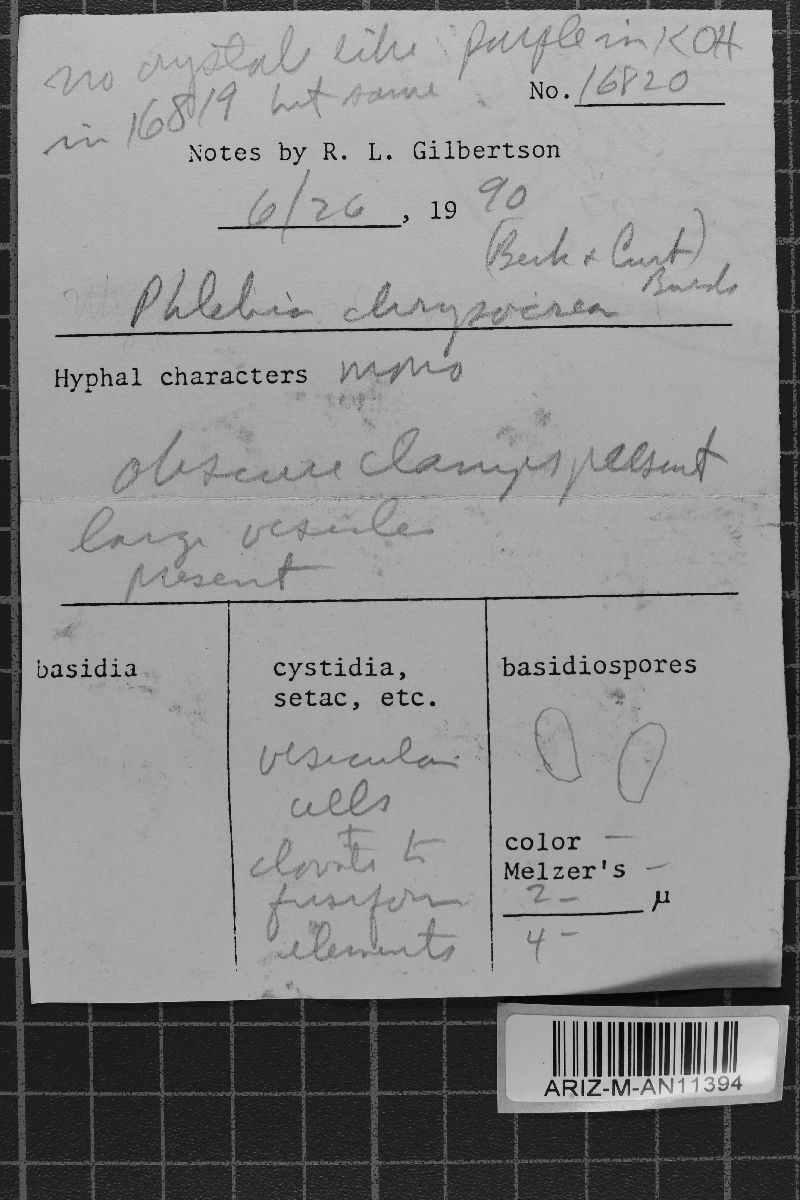 no crystals like purple in KOH
in 16819 but same.
No. 16820
Notes by R. L. Gilbertson
6/26, 19 90
(Berk & Curt)
Phlebia chrysocrea Burds
Hyphal characters mono
obscure clamps present
large vesicles
present
basidia
cystidia,
setac, etc.
vesicular
cells
+
clavate to
fusiform
elements
basidiospores
color —
Melzer's —
2 – µ
4 –
ARIZ-M-AN11394